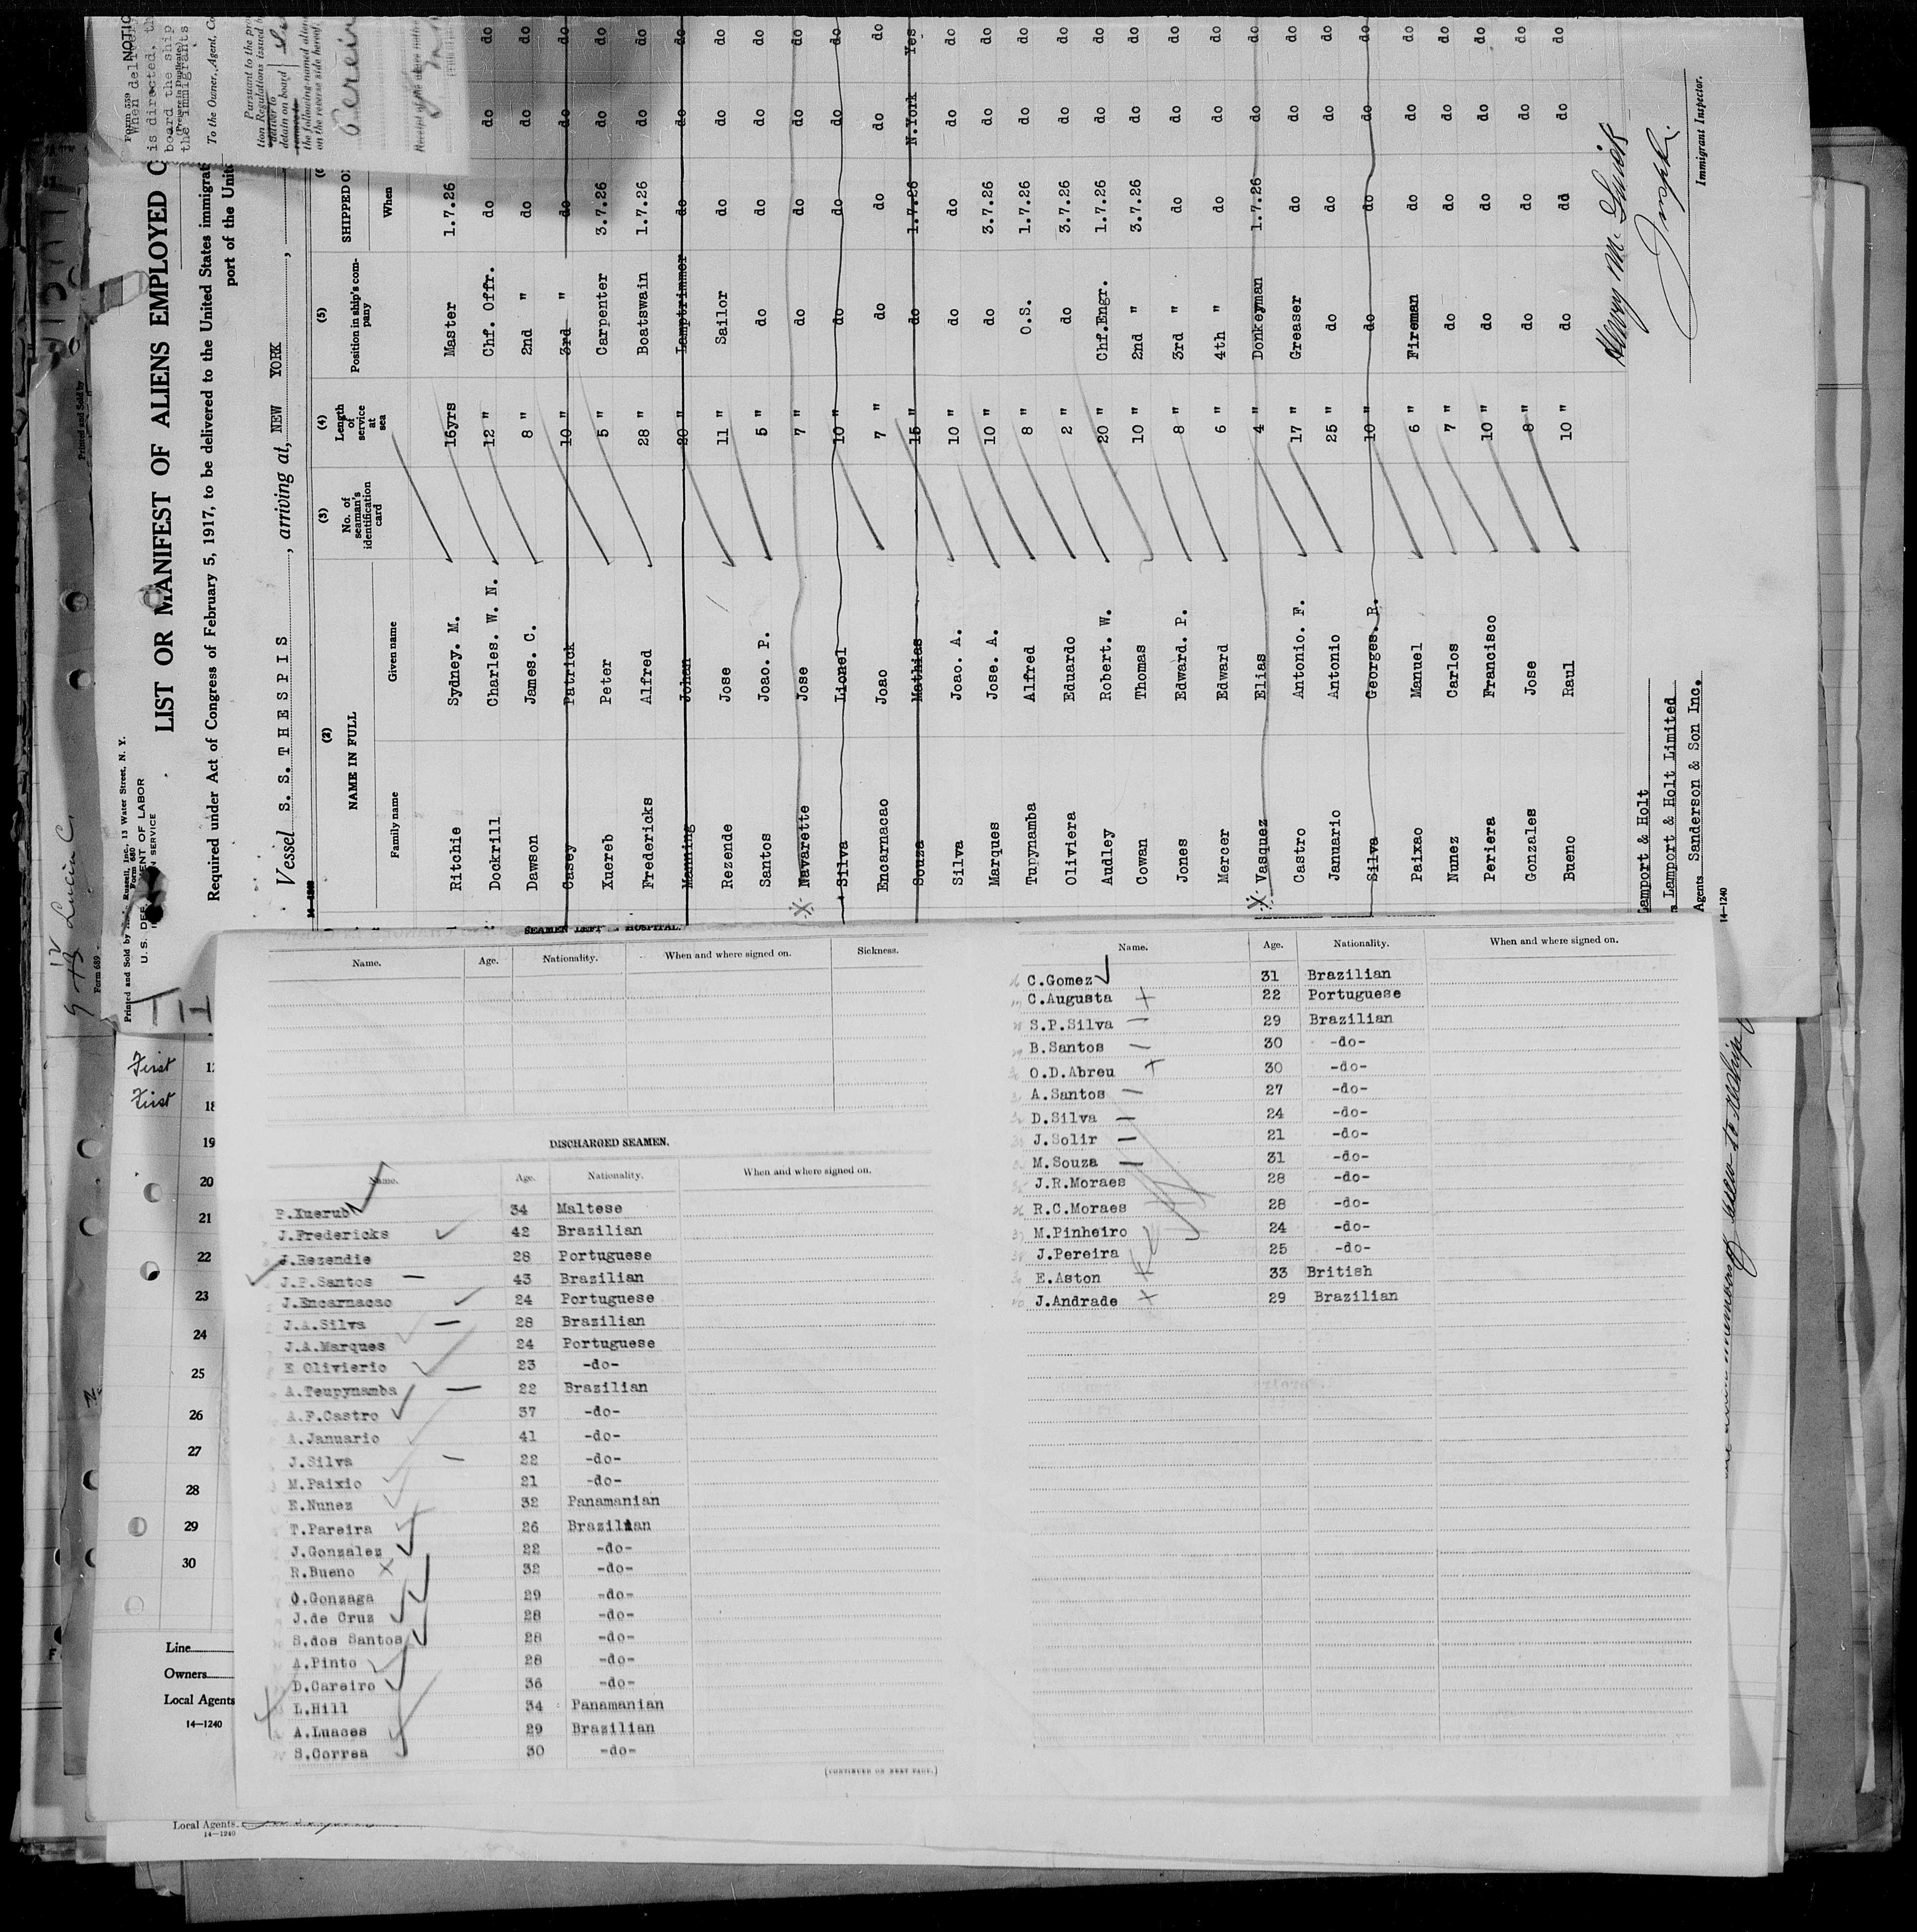 LIST OR MANIFEST OF ALIENS EMPLOYED
Required under Act of Congress of February 5, 1917, to be delivered to the United States immigrat
port of the Unit
Vessel S. S. THESPIS, arriving at, NEW YORK
Printed and Sold by
Russell, Inc., 13 Water Street, N. Y.
Form 680
U.S. DEPARTMENT OF LABOR
Form 689
Form 559 NOTIC
When deliver
is directed, th
board the ship
the immigrants
(Prepare in Duplicate)
To the Owner, Agent, Co
Pursuant to the prov
tion Regulations issued by
deliver to
detain on board
the following-named alien
on the reverse side hereof.
(2) (3) (4) (5)
NAME IN FULL No. of seaman's identification card Length of service at sea Position in ship's company SHIPPED O
Family name Given name When
Ritchie Sydney. M. 16yrs Master 1.7.26
Dockrill Charles. W. N. 12 " Chf. Offr. do do do
Dawson James. C. 8 " 2nd " do do do
Casey Patrick 10 " 3rd " do do do
Xuereb Peter 5 " Carpenter 3.7.26 do do
Fredericks Alfred 28 " Boatswain 1.7.26 do do
Manning Johan 20 " Lamptrimmer do do do
Rezende Jose 11 " Sailor do do do
Santos Joao. P. 5 " do do do do
Navarette Jose 7 " do do do do
Silva Lionel 10 " do do do do
Encarnacao Joao 7 " do do do do
Souza Mathias 15 " do 1.7.26 N.York Yes
Silva Joao. A. 10 " do do do do
Marques Jose. A. 10 " do 3.7.26 do do
Tupynamba Alfred 8 " O.S. 1.7.26 do do
Oliviera Eduardo 2 " do 3.7.26 do do
Audley Robert. W. 20 " Chf.Engr. 1.7.26 do do
Cowan Thomas 10 " 2nd " 3.7.26 do do
Jones Edward. P. 8 " 3rd " do do do
Mercer Edward 6 " 4th " do do do
Vasquez Elias 4 " Donkeyman 1.7.26 do do
Castro Antonic. F. 17 " Greaser do do do
Januario Antonio 25 " do do do do
Silva Georges. R. 10 " do do do do
Paixao Manuel 6 " Fireman do do do
Nunez Carlos 7 " do do do do
Periera Francisco 10 " do do do do
Gonzales Jose 8 " do do do do
Bueno Raul 10 " do dd do do
Lamport & Holt
Lamport & Holt Limited
Agents Sanderson & Son Inc.
14—1240
Immigrant Inspector.
SEAMEN LEFT HOSPITAL.
Name. Age. Nationality. When and where signed on. Sickness.
DISCHARGED SEAMEN.
Name. Age. Nationality. When and where signed on.
P.Xuerub 34 Maltese
J.Fredericks 42 Brazilian
J.Rezendie 28 Portuguese
J.P.Santos 43 Brazilian
J.Encarnacao 24 Portuguese
J.A.Silva 28 Brazilian
J.A.Marques 24 Portuguese
E Olivierio 23 -do-
A.Teupynamba 22 Brazilian
A.F.Castro 37 -do-
A.Januario 41 -do-
J.Silva 22 -do-
M.Paixio 21 -do-
E.Nunez 32 Panamanian
T.Pareira 26 Brazilian
J.Gonzalez 22 -do-
R.Bueno 32 -do-
O.Gonzaga 29 -do-
J.de Cruz 28 -do-
S.dos Santos 28 -do-
A.Pinto 28 -do-
D.Careiro 36 -do-
L.Hill 34 Panamanian
A.Luaces 29 Brazilian
S.Correa 30 -do-
(CONTINUED ON NEXT PAGE.)
Name. Age. Nationality. When and where signed on.
C.Gomez 31 Brazilian
C.Augusta 22 Portuguese
S.P.Silva 29 Brazilian
B.Santos 30 -do-
O.D.Abreu 30 -do-
A.Santos 27 -do-
D.Silva 24 -do-
J.Solir 21 -do-
M.Souza 31 -do-
J.R.Moraes 28 -do-
R.C.Moraes 28 -do-
M.Pinheiro 24 -do-
J.Pereira 25 -do-
E.Aston 33 British
J.Andrade 29 Brazilian
First
First 18
19
20
21
22
23
24
25
26
27
28
29
30
Line
Owners
Local Agents
14—1240
Local Agents
14—1240